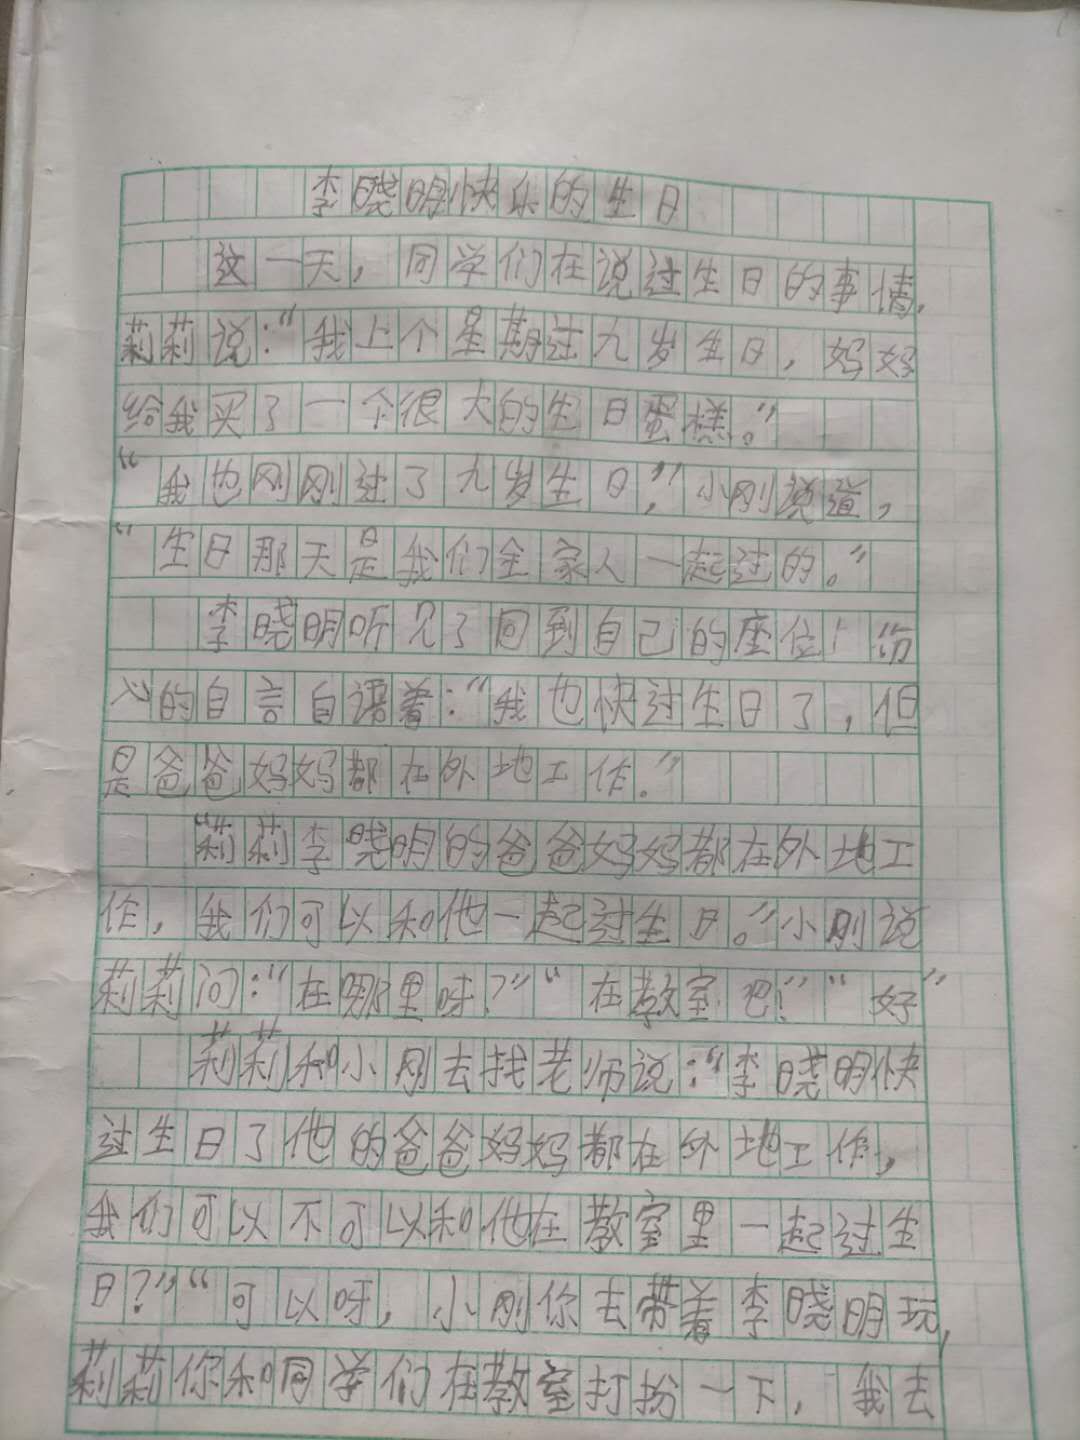 李晓明快乐的生日
这一天，同学们在说过生日的事情，
莉莉说：“我上个星期过九岁生日，妈妈
给我买了一个很大的生日蛋糕。”
“我也刚刚过了九岁生日，”小刚说道，
“生日那天是我们全家人一起过的。”
李晓明听见了回到自己的座位！伤
心的自言自语着：“我也快过生日了，但
是爸爸妈妈都在外地工作。”
“莉莉李晓明的爸爸妈妈都在外地工
作，我们可以和他一起过生日。”小刚说
莉莉问：“在哪里呀？”“在教室吧！”“好”
莉莉和小刚去找老师说：“李晓明快
过生日了他的爸爸妈妈都在外地工作，
我们可以不可以和他在教室里一起过生
日？”“可以呀，小刚你去带着李晓明玩，
莉莉你和同学们在教室打扮一下，我去